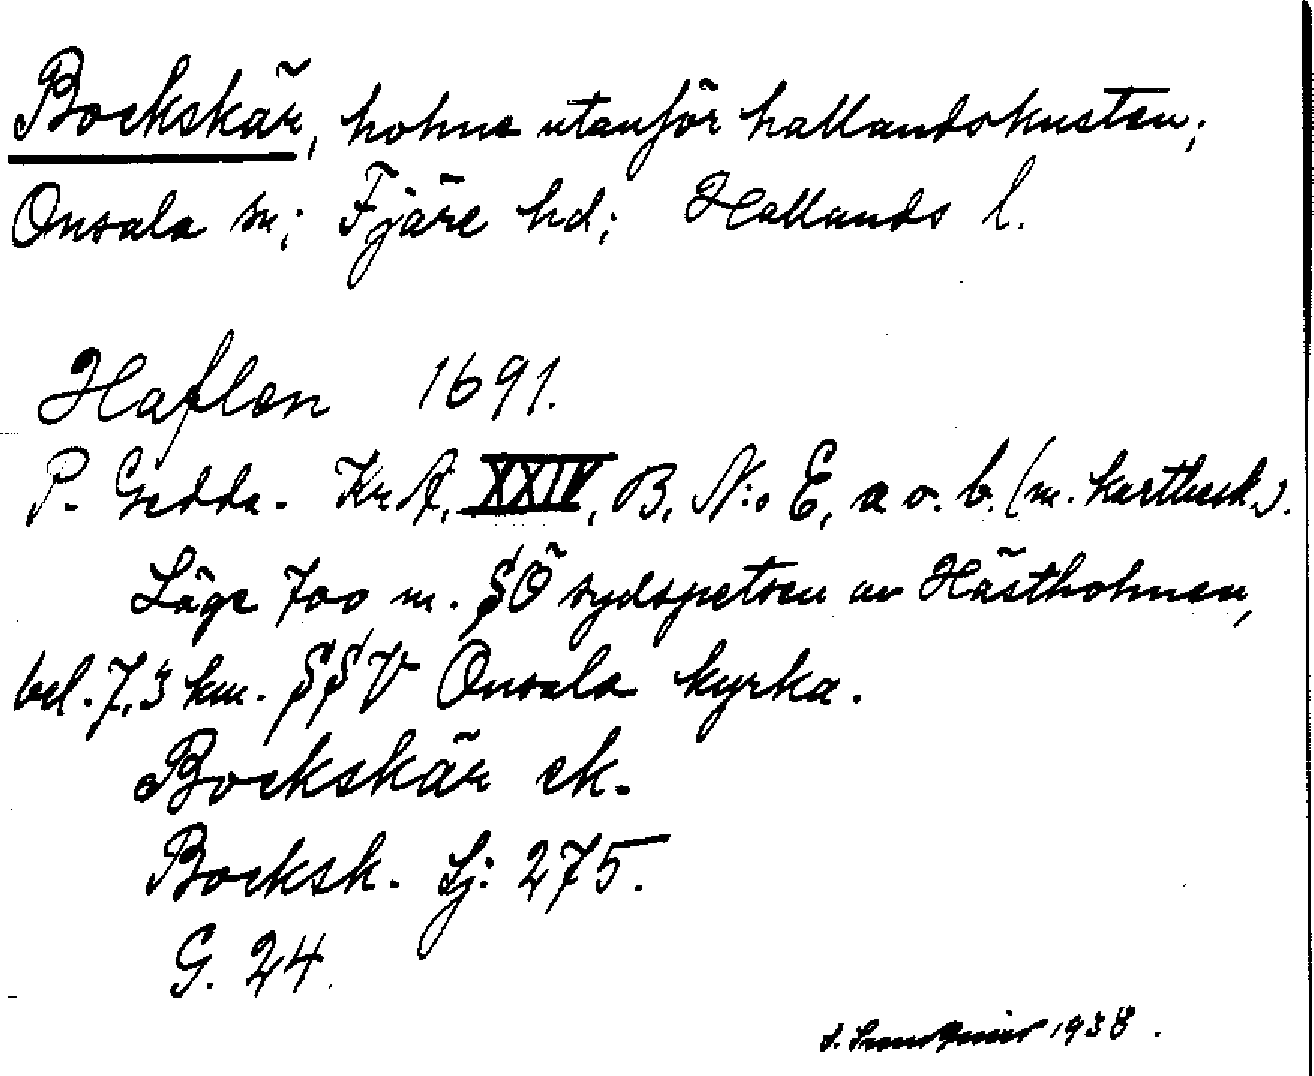 Bockskär, holme utanför hallandskusten;
Onsala sn; Fjäre hd; Hallands l.
Haflen 1691.
P. Gedda. Kr.A. XXIV, B, N:o E, a o. b. (m. kartbesk.).
Läge 700 m. SÖ sydspetsen av Hästholmen,
bel. 7,3 km. SSV Onsala kyrka.
Bockskär ek.
Bocksk. Lj: 275.
G. 24.
1938.